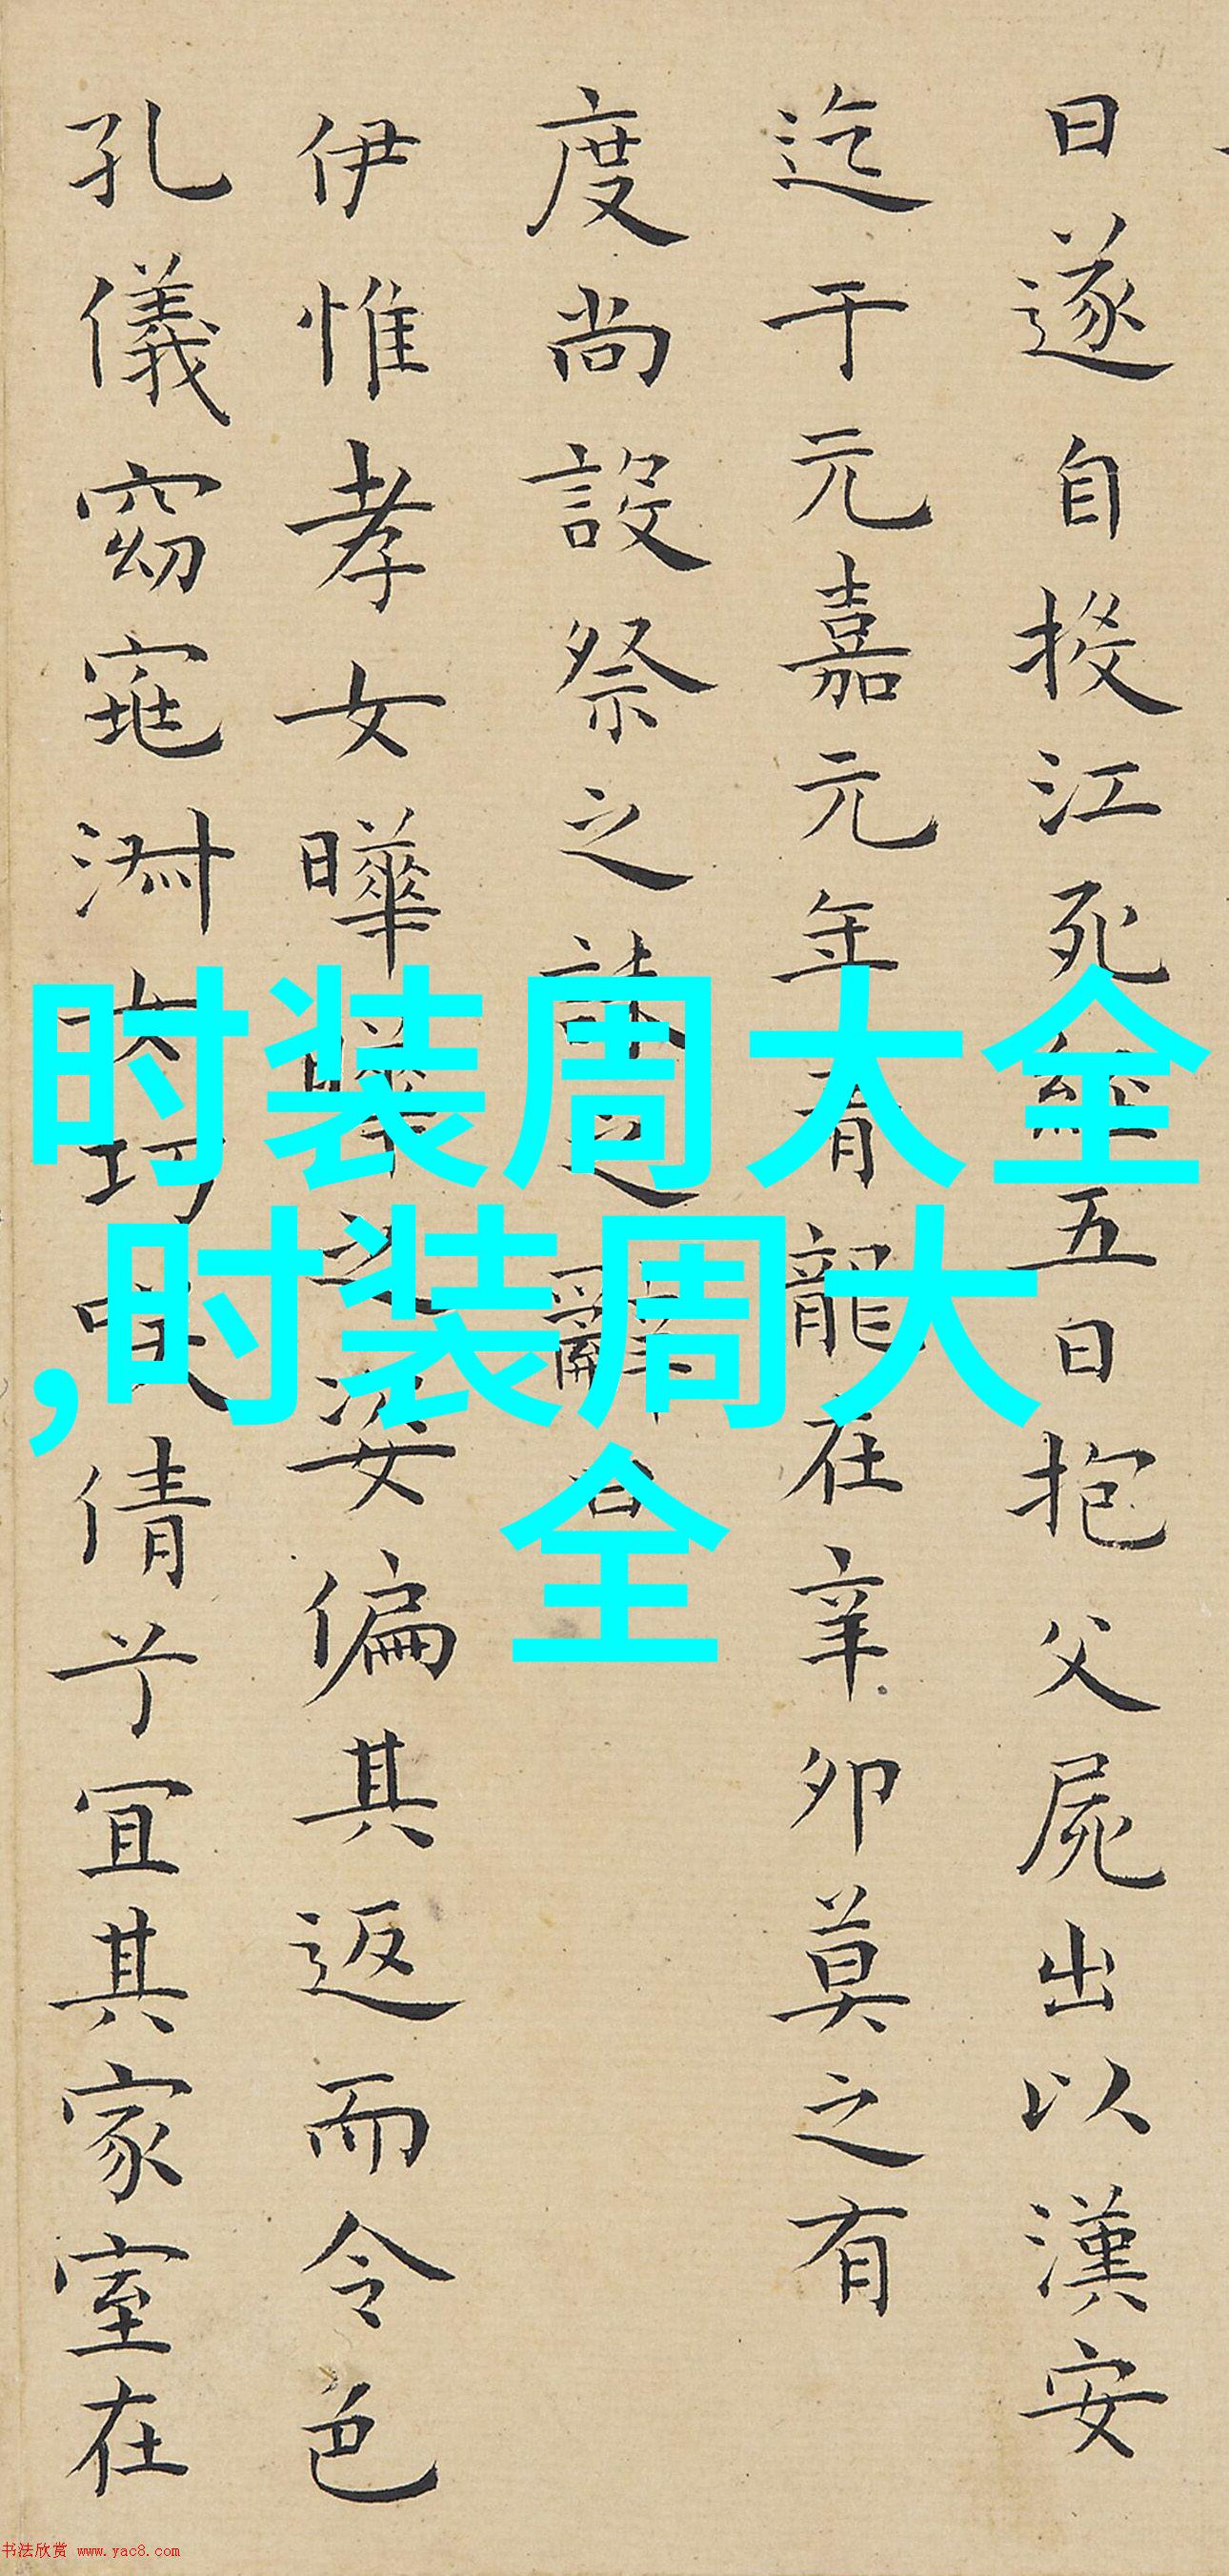 日遂自投江死經五日抱父屍出以漢安
迄于元嘉元年青龍在辛卯莫之有
度尚設祭之誄之辭曰
伊惟孝女曄曄之姿偏其返而令色
孔儀窈窕淑女巧咲倩兮宜其家室在
时装周大全
,时装周大
全
书法欣赏 www.yac8.com